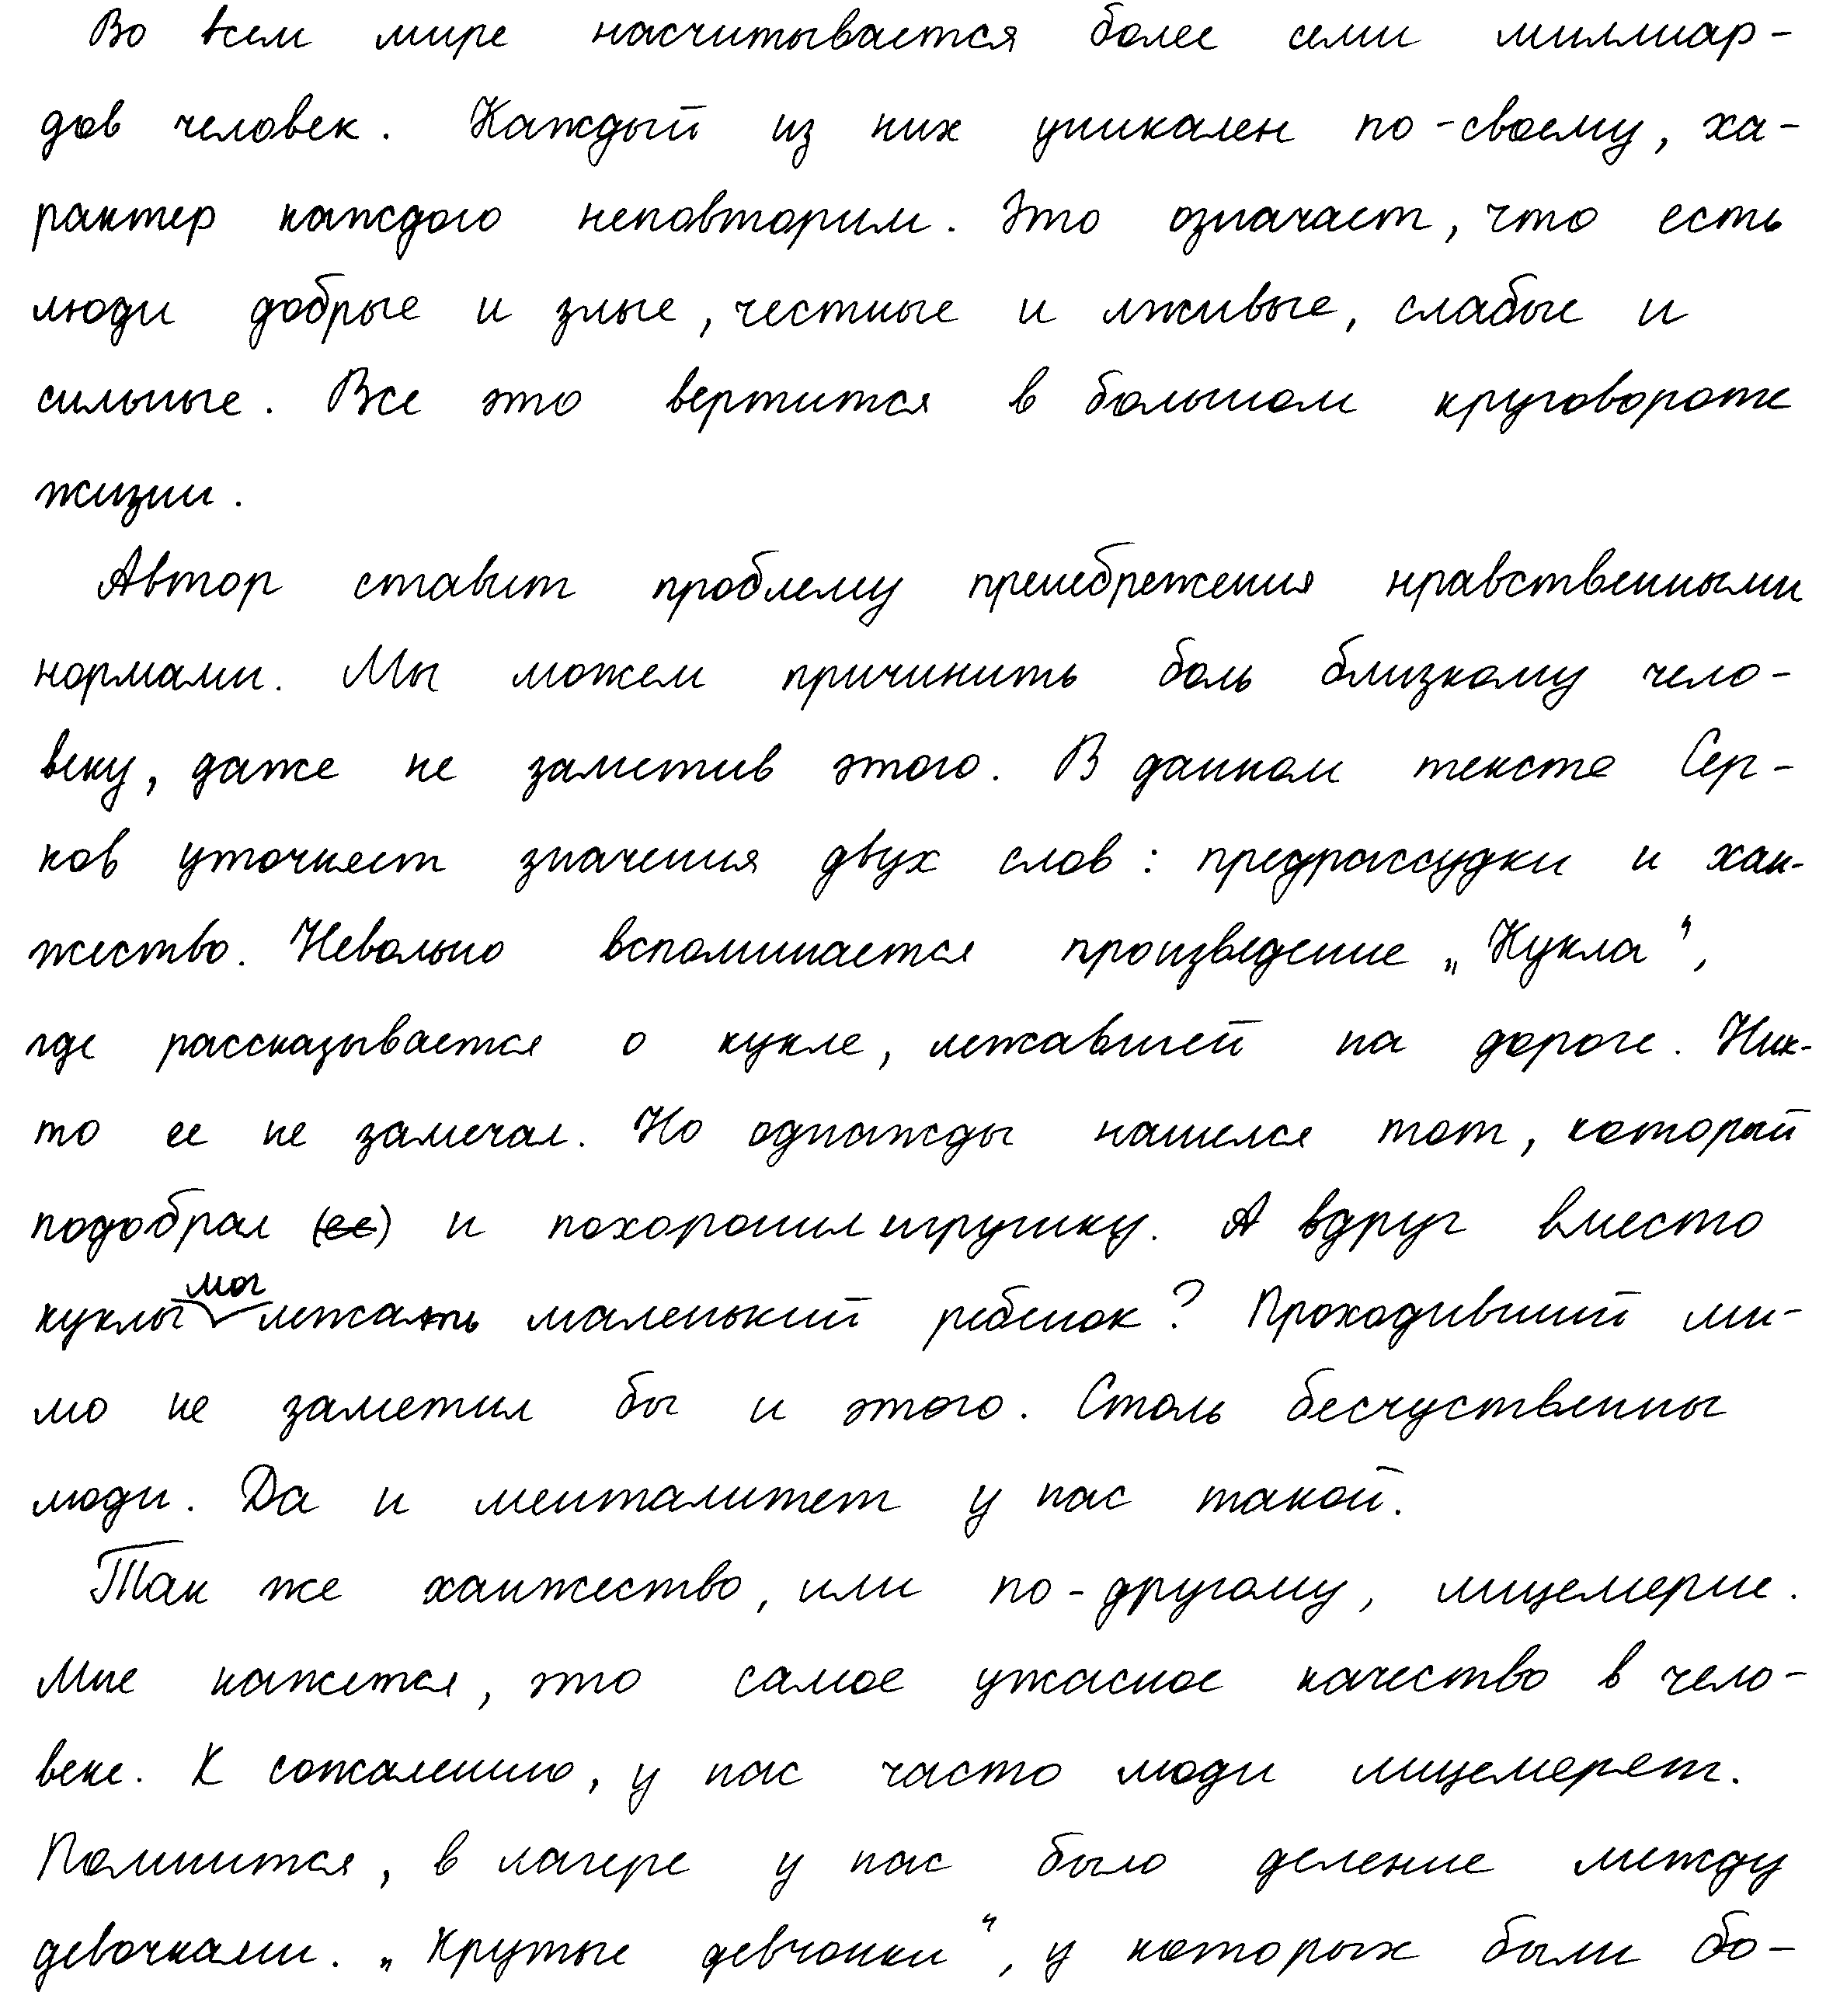 Во всем мире насчитывается более семи миллиар-
дов человек. Каждый из них уникален по-своему, ха-
рактер каждого неповторим. Это означает, что есть
люди добрые и злые, честные и лживые, слабые и
сильные. Все это вертится в большом круговороте
жизни.
Автор ставит проблему пренебрежения нравственными
нормами. Мы можем причинить боль близкому чело-
веку, даже не заметив этого. В данном тексте Сер-
ков уточняет значения двух слов: предрассудки и хан-
жество. Невольно вспоминается произведение „Кукла“,
где рассказывается о кукле, лежавшей на дороге. Ник-
то ее не замечал. Но однажды нашелся тот, который
подобрал (ее) и похоронил игрушку. А вдруг вместо
куклы мог лежать маленький ребенок? Проходивший ми-
мо не заметил бы и этого. Столь бесчуственны
люди. Да и менталитет у нас такой.
Так же ханжество, или по-другому, лицемерие.
Мне кажется, это самое ужасное качество в чело-
веке. К сожалению, у нас часто люди лицемерят.
Помнится, в лагере у нас было деление между
девочками. „Крутые девчонки“, у которых были бо-